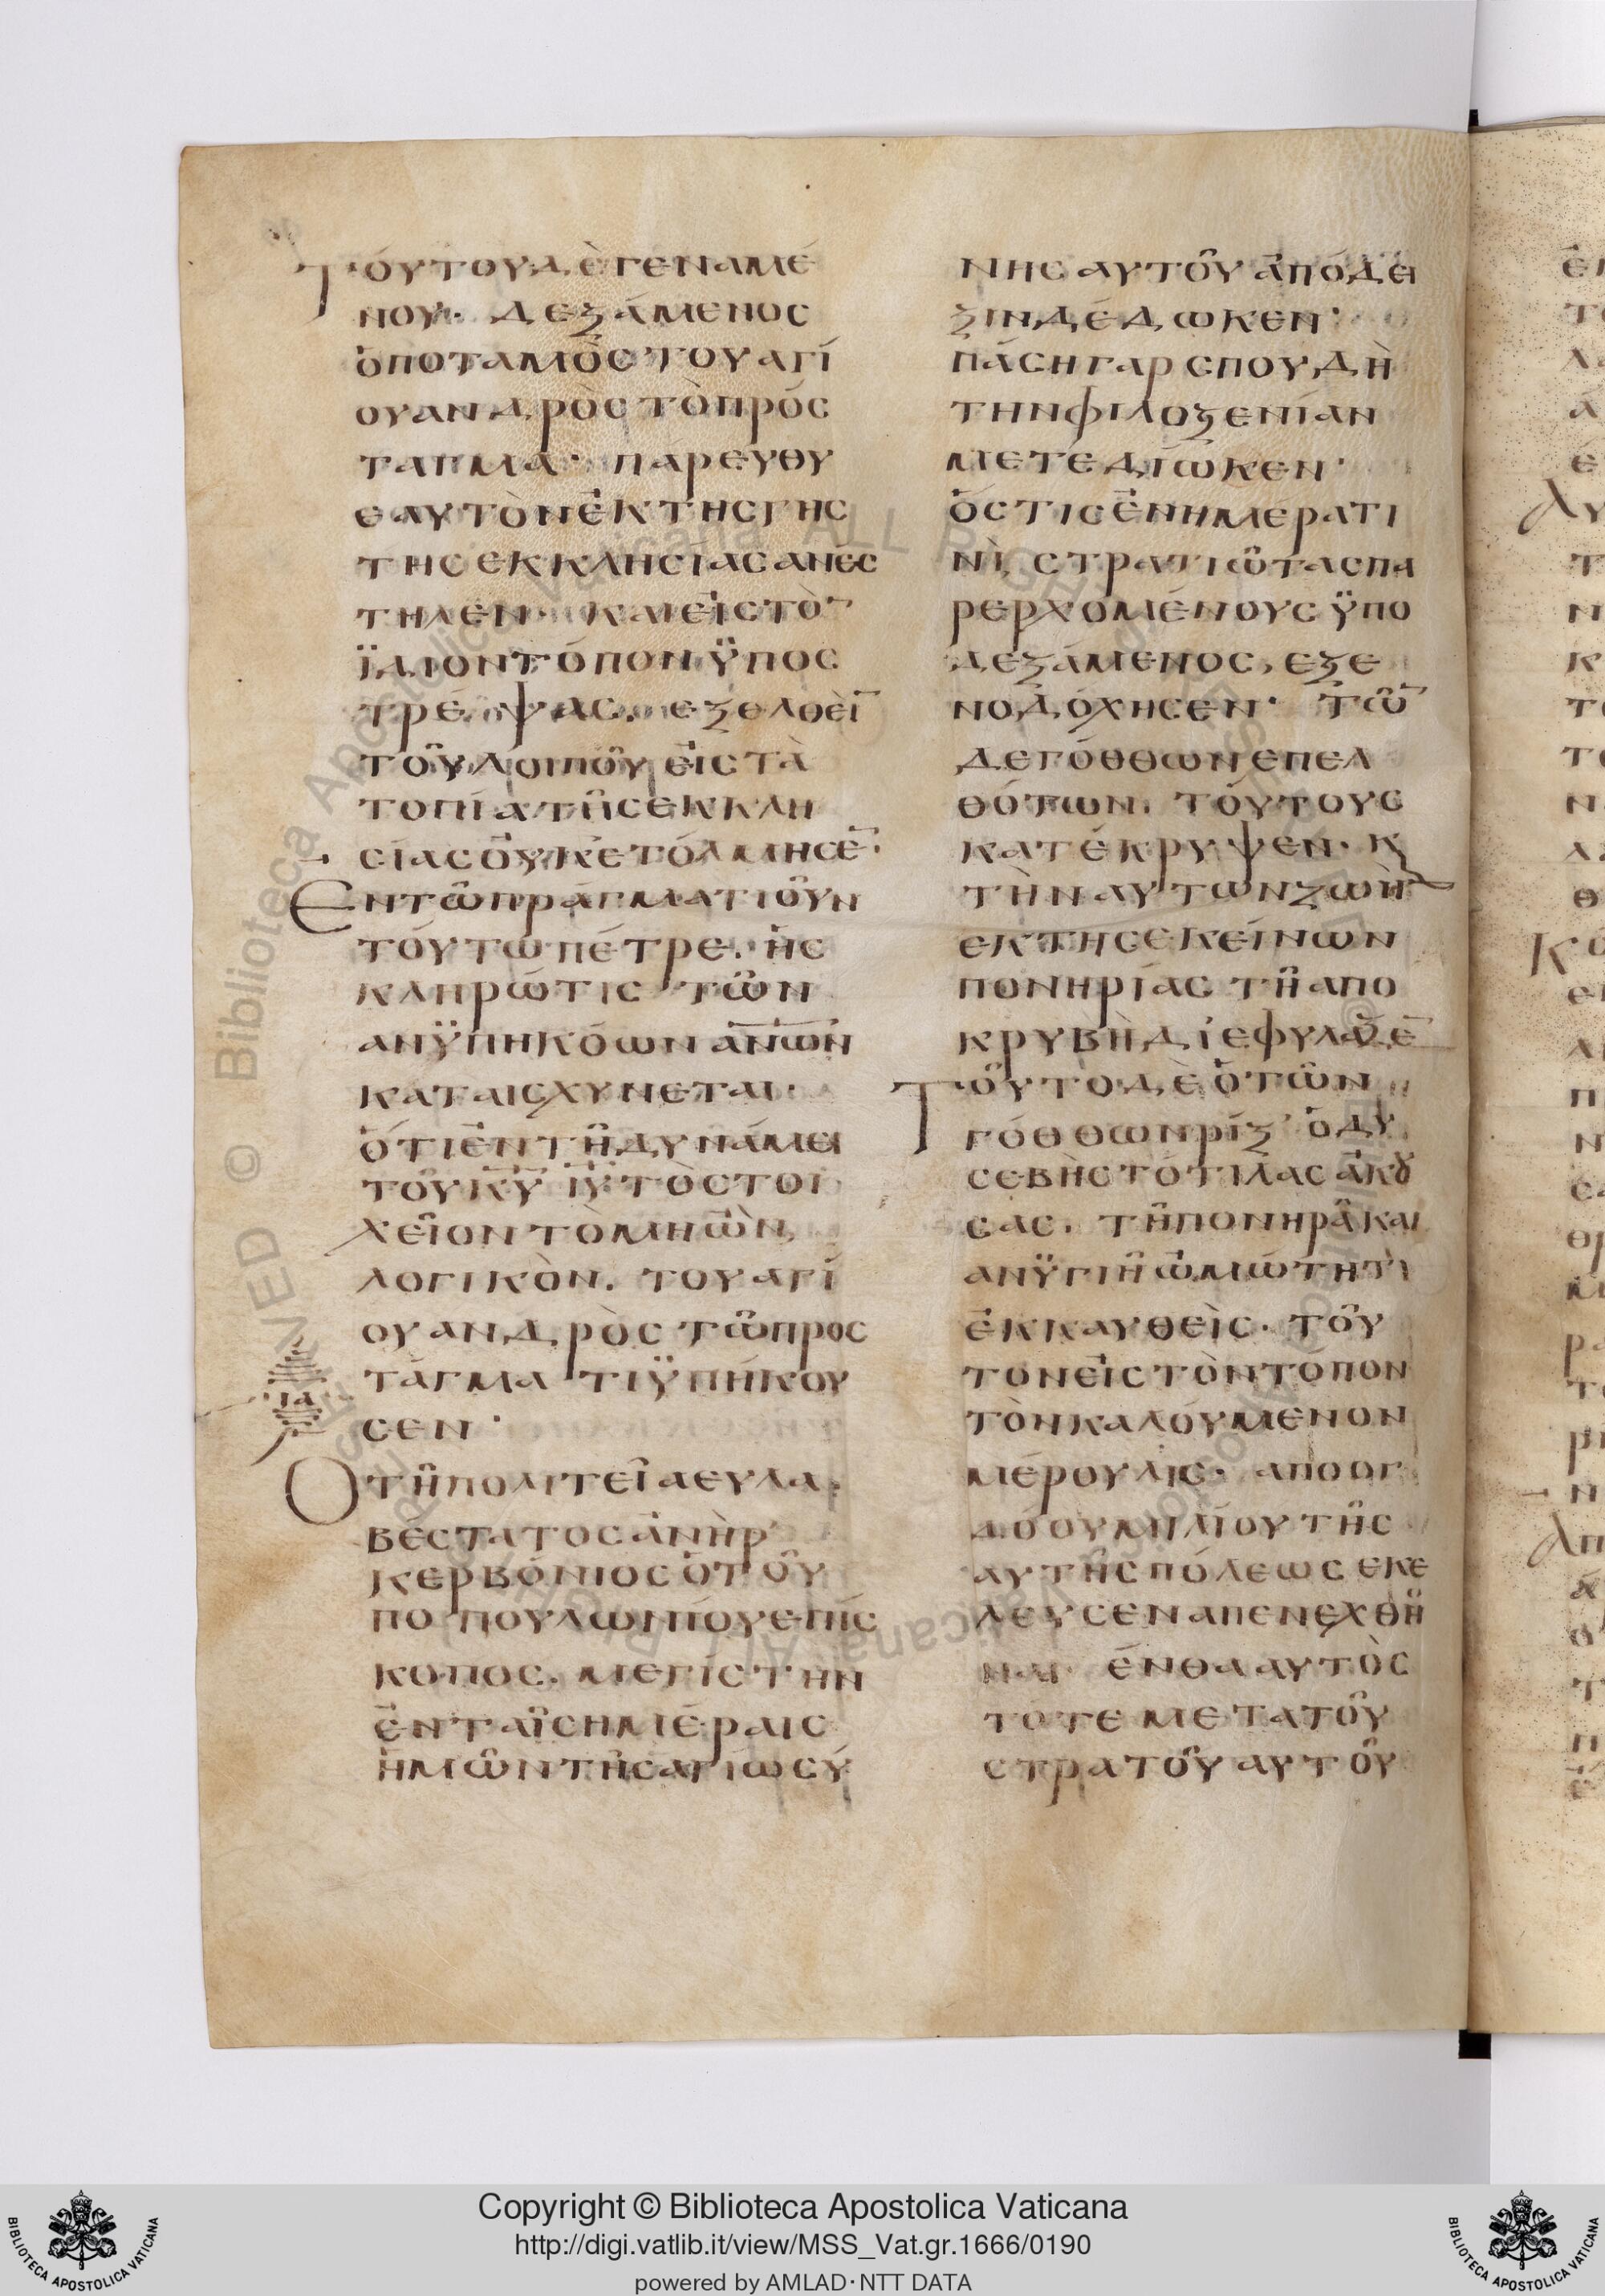 Τούτου δὲ γεναμέ
νου· δεξάμενος
ὁ ποταμὸς τοῦ ἁγί
ου ἀνδρὸς τὸ πρόσ
ταγμα· παρευθὺ
ἑαυτὸν ἐκ τῆς γῆς
τῆς ἐκκλησίας ἀνέσ
τηλεν· καὶ εἰς τὸ¯
ϊδιον τόπον ϋποσ
τρέψας· ἐξελθεῖ¯
τοῦ λοιποῦ εἰς τὰ
τοπία τῆς ἐκκλη
σίας οὐκ ἐτόλμησε¯·
Ἐν τῶ πράγματι οὖν
τούτω πέτρε· ἡ σ
κληρώτις τῶν
ἀνϋπηκόων ἀν̅ων̅
καταισχύνεται·
ὅτι ἐν τῆ δυνάμει
τοῦ κ̅υ̅ ι̅υ̅ τὸ στοι
χεῖον τὸ μὴ ὢν
λογικὸν· τοῦ ἁγί
ου ἀνδρὸς τῶ προσ
τάγματι ϋπήκου
σεν·
ια
Ο τῆ πολιτεία εὐλα
βέστατος ἀνὴρ
κερβόνιος ὁ τοῦ
ποπουλωνίου ἐπίσ
κοπος· μεγίστην
ἐν ταῖς ἡμέραις
ἡμῶν τῆς ἁγιωσύ
νης αὐτοῦ ἀπόδει
ξιν δέδωκεν·
πάση γὰρ σπουδῆ
τὴν φιλοξενίαν
μετεδίωκεν·
ὅστις ἐν ἡμέρα τι
νὶ, στρατιῶτας πα
ρερχομένους ϋπο
δεξάμενος, ἐξε
νοδόχησεν· τῶ¯
δὲ γόθθων ἐπελ
θότων, τούτους
κατέκρυψεν· κ
τὴν αὐτῶν ζωὴ¯
ἐκ τῆς ἐκείνων
πονηρίας τῆ ἀπο
κρυβῆ διεφύλαξε¯
Τοῦτο δὲ ὁ τῶν
γόθθων ρίξ ὁ δυ
σεβὴς τότιλας ἀκȣ
σας, τῆ πονηρᾶ καὶ
ἀνϋγιῆ ὠμώτητι
ἐκκαυθεὶς· τοῦ
τον εἰς τὸν τόπον
τὸν καλούμενον
μέρουλις· ἀπὸ ὀγ
δόου μιλίου τῆς
αὐτῆς πόλεως ἐκέ
λευσεν ἀπενεχθῆ
ναι· ἔνθα αὐτὸς
τότε μετὰ τοῦ
στρατοῦ αὐτοῦ
Copyright © Biblioteca Apostolica Vaticana
http://digi.vatlib.it/view/MSS_Vat.gr.1666/0190
powered by AMLAD·NTT DATA
BIBLIOTECA APOSTOLICA VATICANA
BIBLIOTECA APOSTOLICA VATICANA